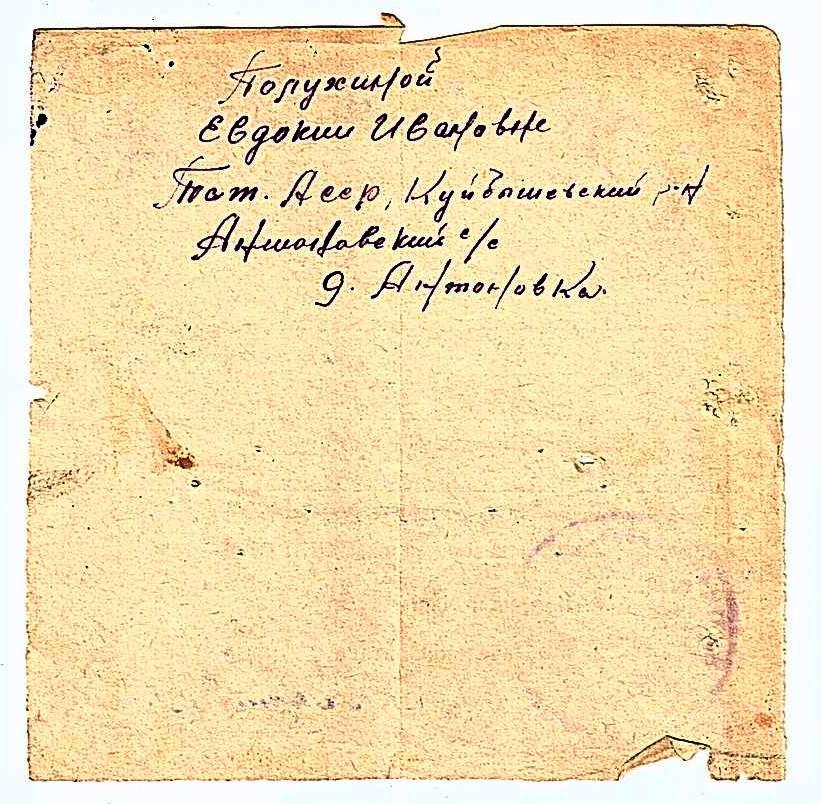 Полужиной
Евдокии Ивановне
Тат. Асср, Куйбышевский р-н
Антоновский с/с
д. Антоновка.